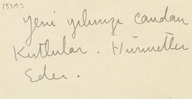 13343
Yeni yılınızı candan
Kutlular. Hürmetler
Eder.